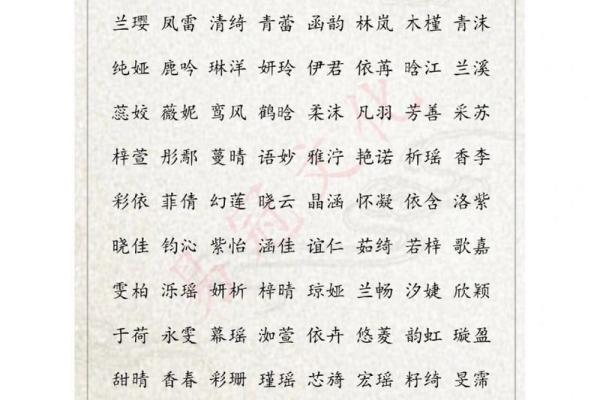 兰璎 凤雷 清绮 青蕾 函韵 林岚 木槿 青沫
纯娅 鹿吟 琳洋 妍玲 伊君 依苒 晗江 兰溪
蕊姣 薇妮 鸾风 鹤晗 柔沫 凡羽 芳善 采苏
梓萱 彤鄢 蔓晴 语妙 雅泞 艳诺 析瑶 香李
彩依 菲倩 幻莲 晓云 晶涵 怀凝 依含 洛紫
晓佳 钧沁 紫怡 涵佳 谊仁 茹绮 若梓 歌嘉
雯柏 泺瑶 妍析 梓晴 琼娅 兰畅 汐婕 欣颖
于荷 永雯 幕瑶 洳萱 依卉 悠菱 韵虹 璇盈
甜晴 香春 彩珊 瑾瑶 芯旖 宏瑶 籽绮 旻霈
文化